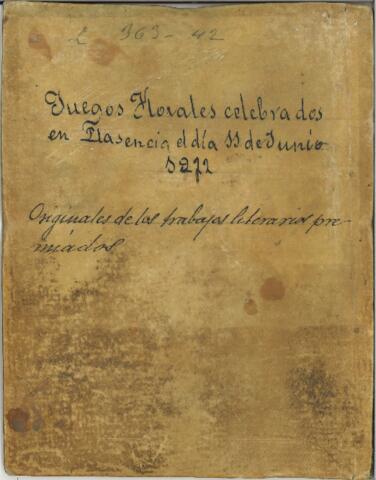 2 363-42
Juegos Florales celebrados
en Plasencia el día 11 de Junio
1872
Originales de los trabajos literarios pre-
miados